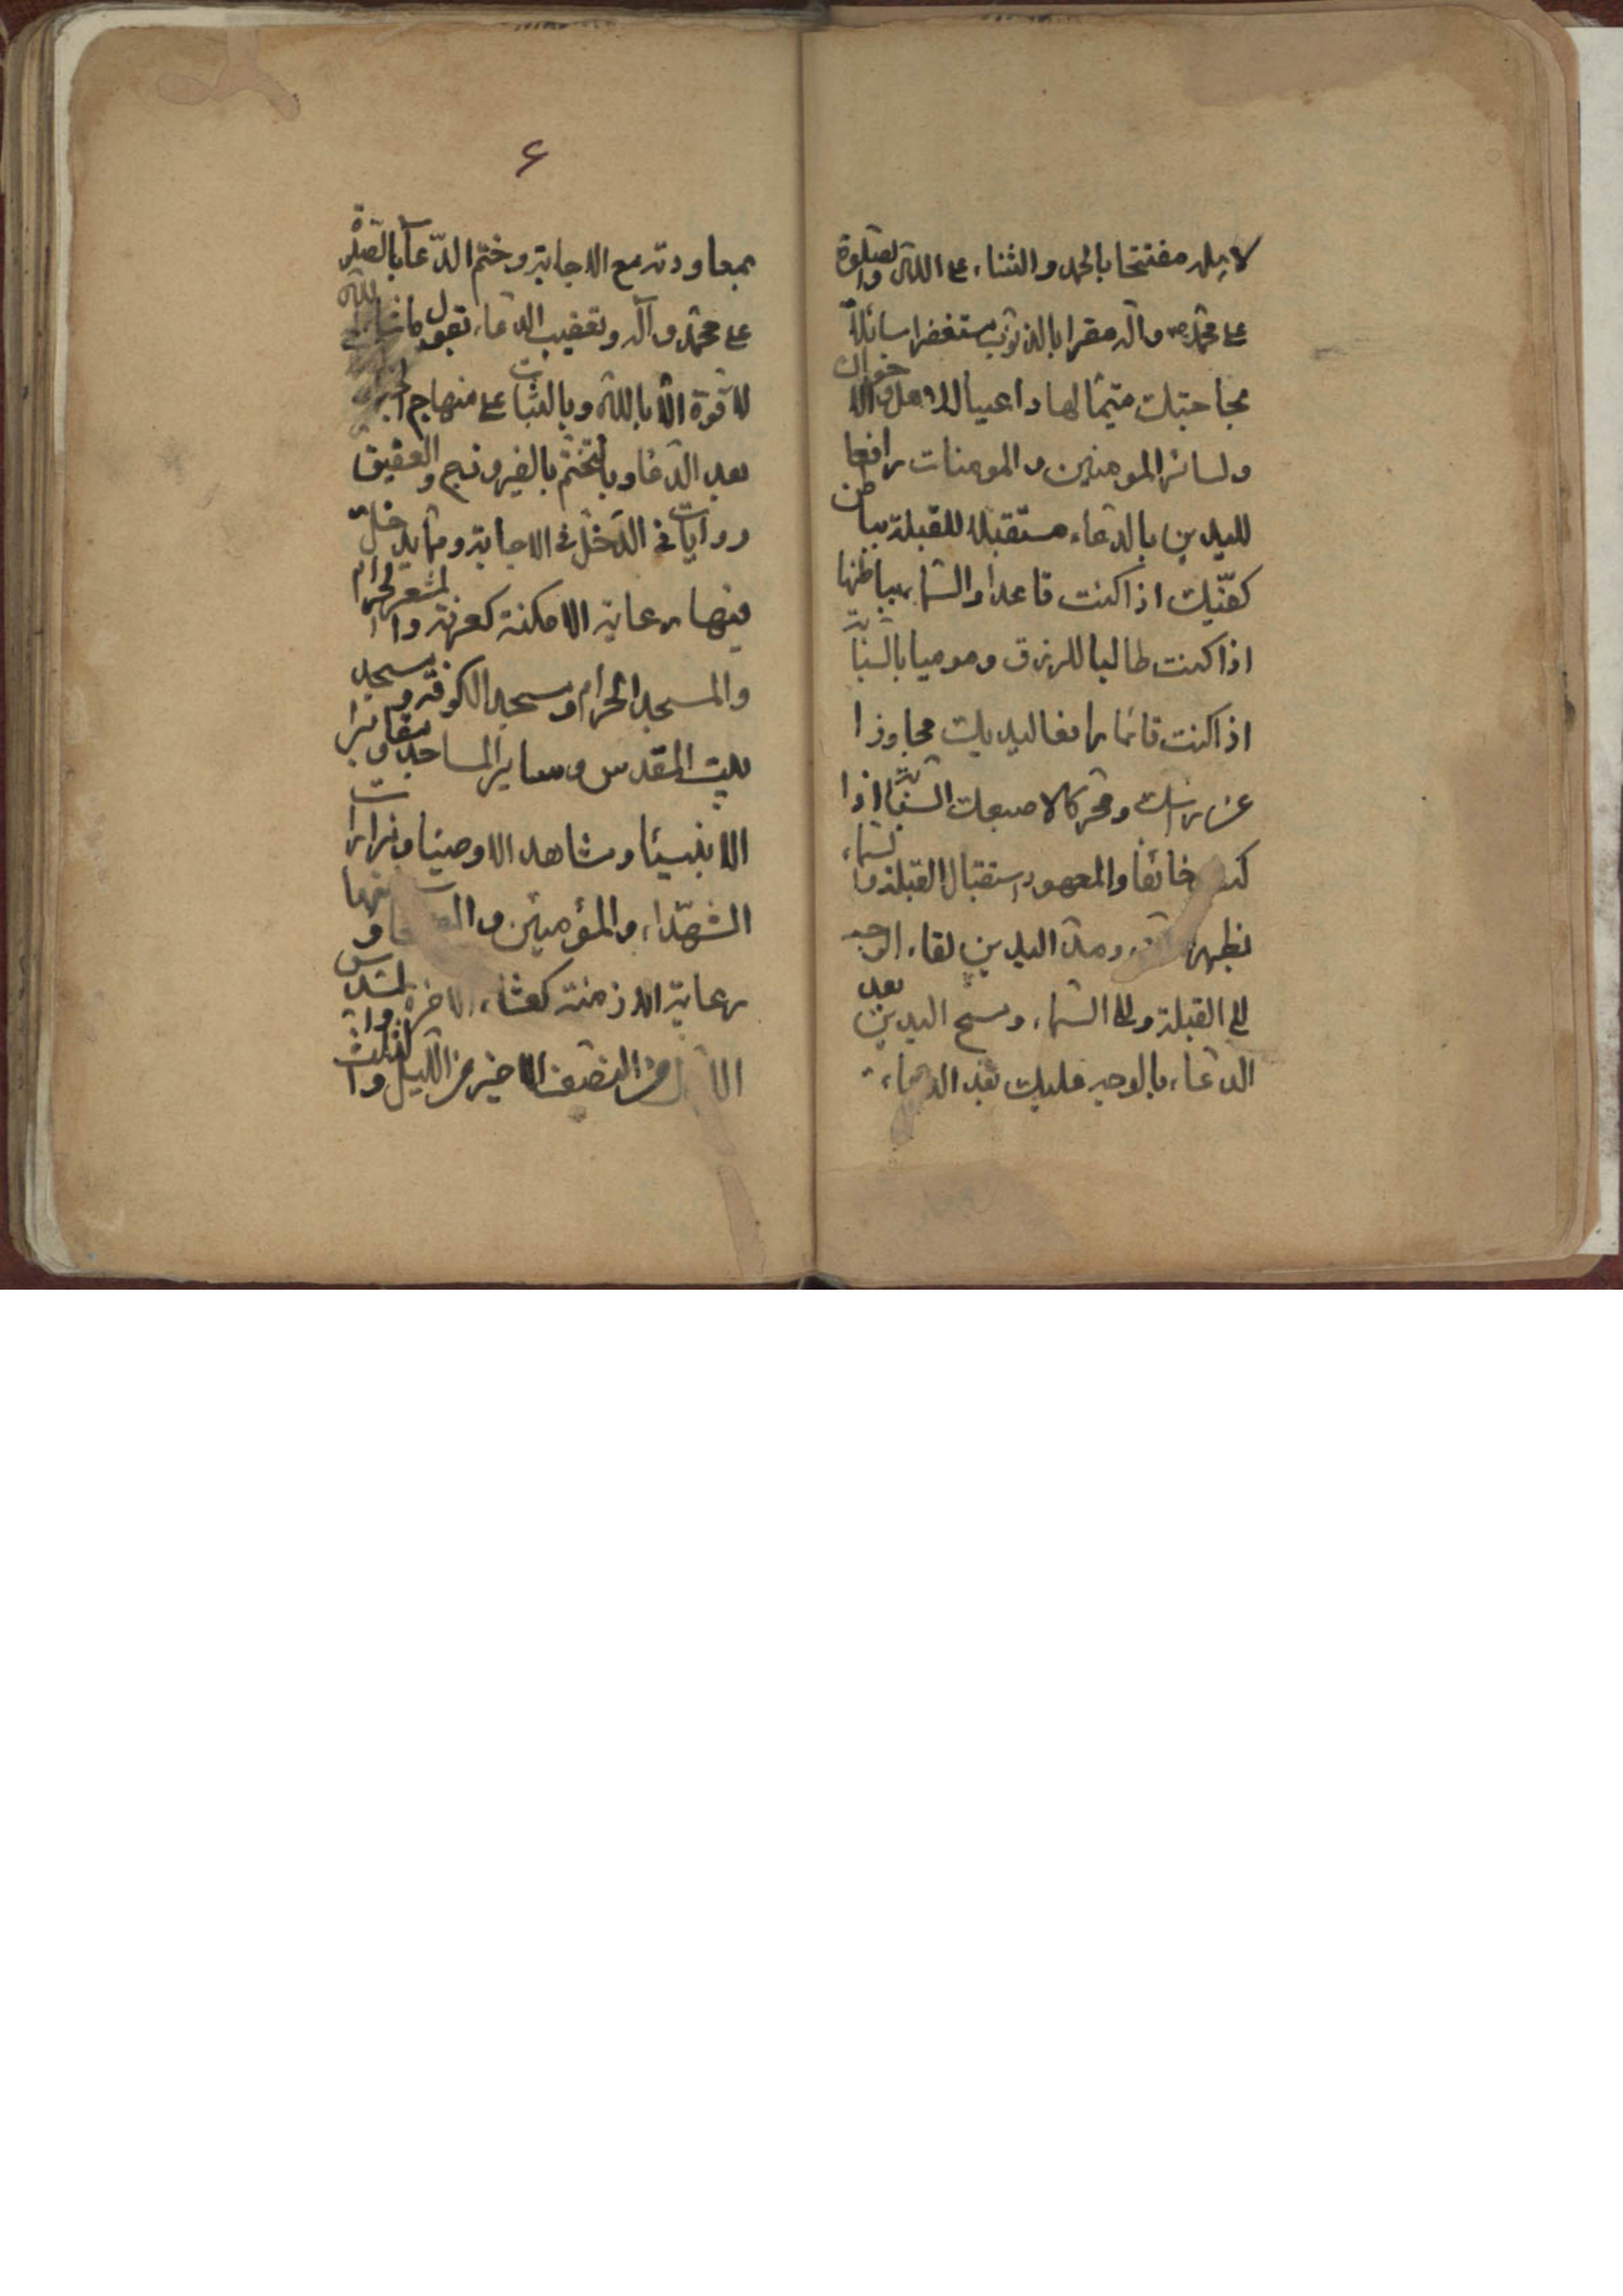 لاهله مفتتحا بالحمد والثناء على الله والصلوة
على محمد ص وآله مقرا بالذنوب مستغفرا سائلا
بحاجتك متيما لها داعيا للاهل والاخوان
ولسائر المومنين والمومنات رافعا
لليدين بالدعاء مستقبلا للقبلة بباطن
كفيك اذا كنت قاعدا والسماء بباطنها
اذا كنت طالبا للرزق وموميا بالسبابة
اذا كنت قائما رافعا ليديك مجاوزا
عن راسك ومحركا لاصبعك السبابة اذا
كنت خائفا والمعهود استقبال القبلة والسماء
بظهر ومد اليدين لقاء الوجه
الى القبلة والى السماء ومسح اليدين بعد
الدعاء بالوجه فليك بعد الدعاء
۶
بمعاودته مع الاجابة وختم الدعاء بالصلوة
على محمد وآله وتعقيب الدعاء تقول ما شاء الله
لا قوة الا بالله وبالثبات على منهاج الخير
بعد الدعا وبالتختم بالفيروزج والعقيق
وروايات في الدخل في الاجابة ومما يدخل
فيها رعاية الامكنة كعرفة والمشعر الحرام
والمسجد الحرام ومسجد الكوفة ومسجد
بيت المقدس وساير المساجد ومقابر
الانبيئا ومشاهد الاوصيئا ومزارات
الشهداء والمؤمنين و ومنها
رعاية الازمنة كعشاء الاخرة والسدس
الاول من النصف الاخير من الليل والثلث